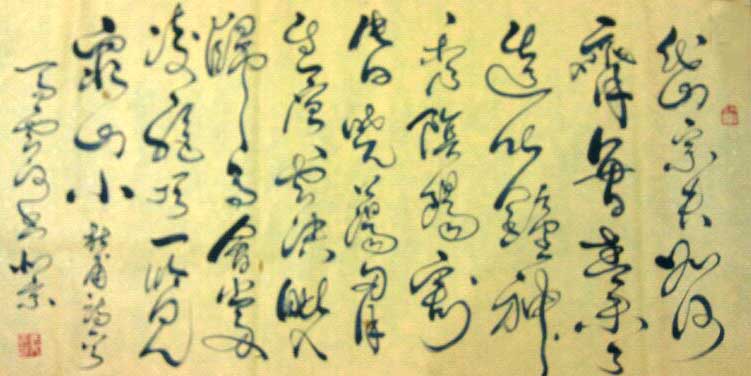 岱宗夫如何
齊魯青未了
造化鍾神
秀陰陽割
昏曉蕩胸
生層雲決眥入
歸鳥會當
凌絕頂一覽
眾山小 杜甫詩